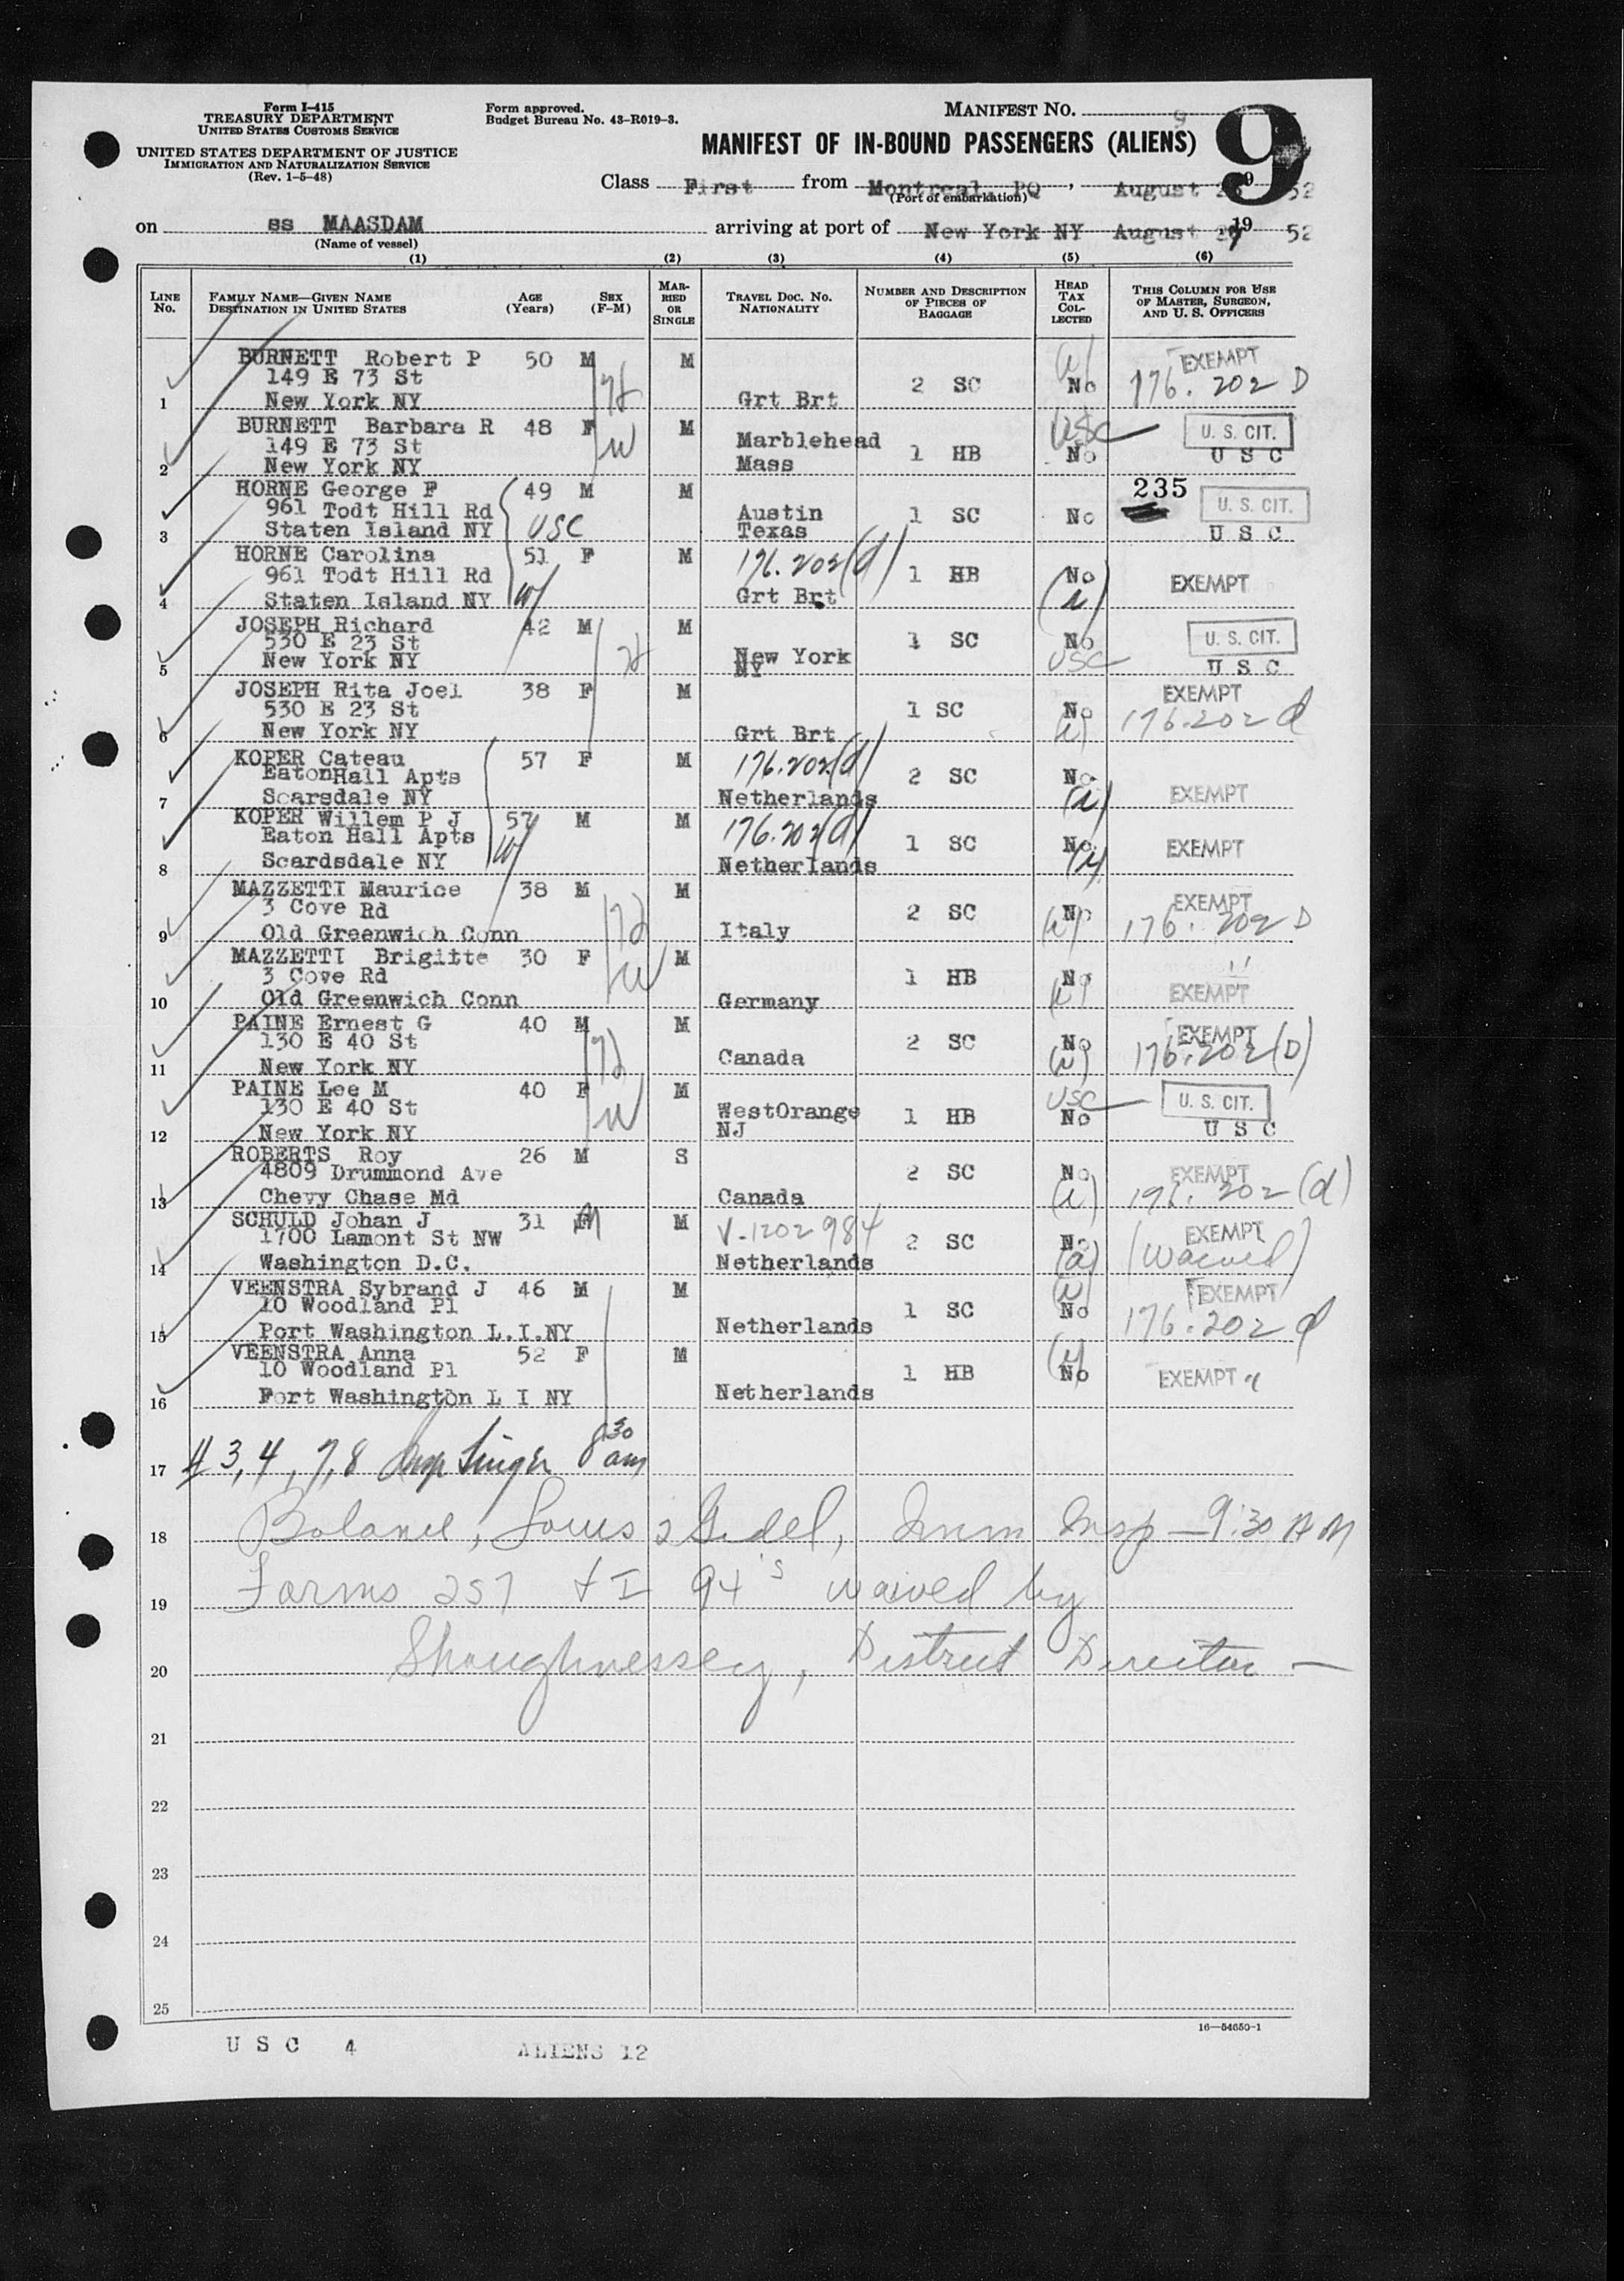 Form I-415
TREASURY DEPARTMENT
UNITED STATES CUSTOMS SERVICE
UNITED STATES DEPARTMENT OF JUSTICE
IMMIGRATION AND NATURALIZATION SERVICE
(Rev. 1-5-48)
Form approved.
Budget Bureau No. 43-R019-3.
MANIFEST NO.
9
9
MANIFEST OF IN-BOUND PASSENGERS (ALIENS)
Class First from Montreal PQ, August 52
(Port of embarkation)
on ss MAASDAM arriving at port of New York NY August 19 52
(Name of vessel)
(1) (2) (3) (4) (5) (6)
LINE No. FAMILY NAME—GIVEN NAME DESTINATION IN UNITED STATES AGE (Years) SEX (F-M) MARRIED OR SINGLE TRAVEL DOC. NO. NATIONALITY NUMBER AND DESCRIPTION OF PIECES OF BAGGAGE HEAD TAX COLLECTED THIS COLUMN FOR USE OF MASTER, SURGEON, AND U. S. OFFICERS
BURNETT Robert P 50 M M EXEMPT
149 E 73 St 2 SC No 176.202 D
1 New York NY Grt Brt
BURNETT Barbara R 48 F M USC U. S. CIT.
149 E 73 St Marblehead 1 HB No U S C
2 New York NY Mass
HORNE George F 49 M M 235 U. S. CIT.
961 Todt Hill Rd Austin 1 SC No
3 Staten Island NY USC Texas U S C
HORNE Carolina 51 F M 176.202(d)
961 Todt Hill Rd 1 HB No EXEMPT
4 Staten Island NY Grt Brt
JOSEPH Richard 42 M M U. S. CIT.
530 E 23 St 1 SC No
5 New York NY New York NY USC U S C
JOSEPH Rita Joel 38 F M EXEMPT
530 E 23 St 1 SC No 176.202 d
6 New York NY Grt Brt
KOPER Cateau 57 F M 176.202(d)
EatonHall Apts 2 SC No
7 Scarsdale NY Netherlands EXEMPT
KOPER Willem P J 57 M M 176.202(d)
Eaton Hall Apts 1 SC No EXEMPT
8 Scardsdale NY Netherlands
MAZZETTI Maurice 38 M M EXEMPT
3 Cove Rd 2 SC No 176.202 D
9 Old Greenwich Conn Italy
MAZZETTI Brigitte 30 F M "
3 Cove Rd 1 HB No
10 Old Greenwich Conn Germany EXEMPT
PAINE Ernest G 40 M M EXEMPT
130 E 40 St 2 SC No 176.202(D)
11 New York NY Canada
PAINE Lee M 40 F M USC U. S. CIT.
130 E 40 St WestOrange 1 HB No
12 New York NY NJ U S C
ROBERTS Roy 26 M S EXEMPT
4809 Drummond Ave 2 SC No 176.202(d)
13 Chevy Chase Md Canada
SCHULD Johan J 31 M M V-1202984 EXEMPT
1700 Lamont St NW 2 SC No (Waived)
14 Washington D.C. Netherlands (a)
VEENSTRA Sybrand J 46 M M EXEMPT
10 Woodland Pl 1 SC No 176.202 d
15 Port Washington L.I.NY Netherlands
VEENSTRA Anna 52 F M
10 Woodland Pl 1 HB No EXEMPT "
16 Port Washington L I NY Netherlands
17 # 3, 4, 7, 8 Insp Singer 8 30 am
18 Balance, Louis Gidel, Imm Insp — 9:30 AM
19 Forms 257 + I 94's waived by
20 Shaughnessey, District Director —
21
22
23
24
25
16—54650-1
U S C 4 ALIENS 12